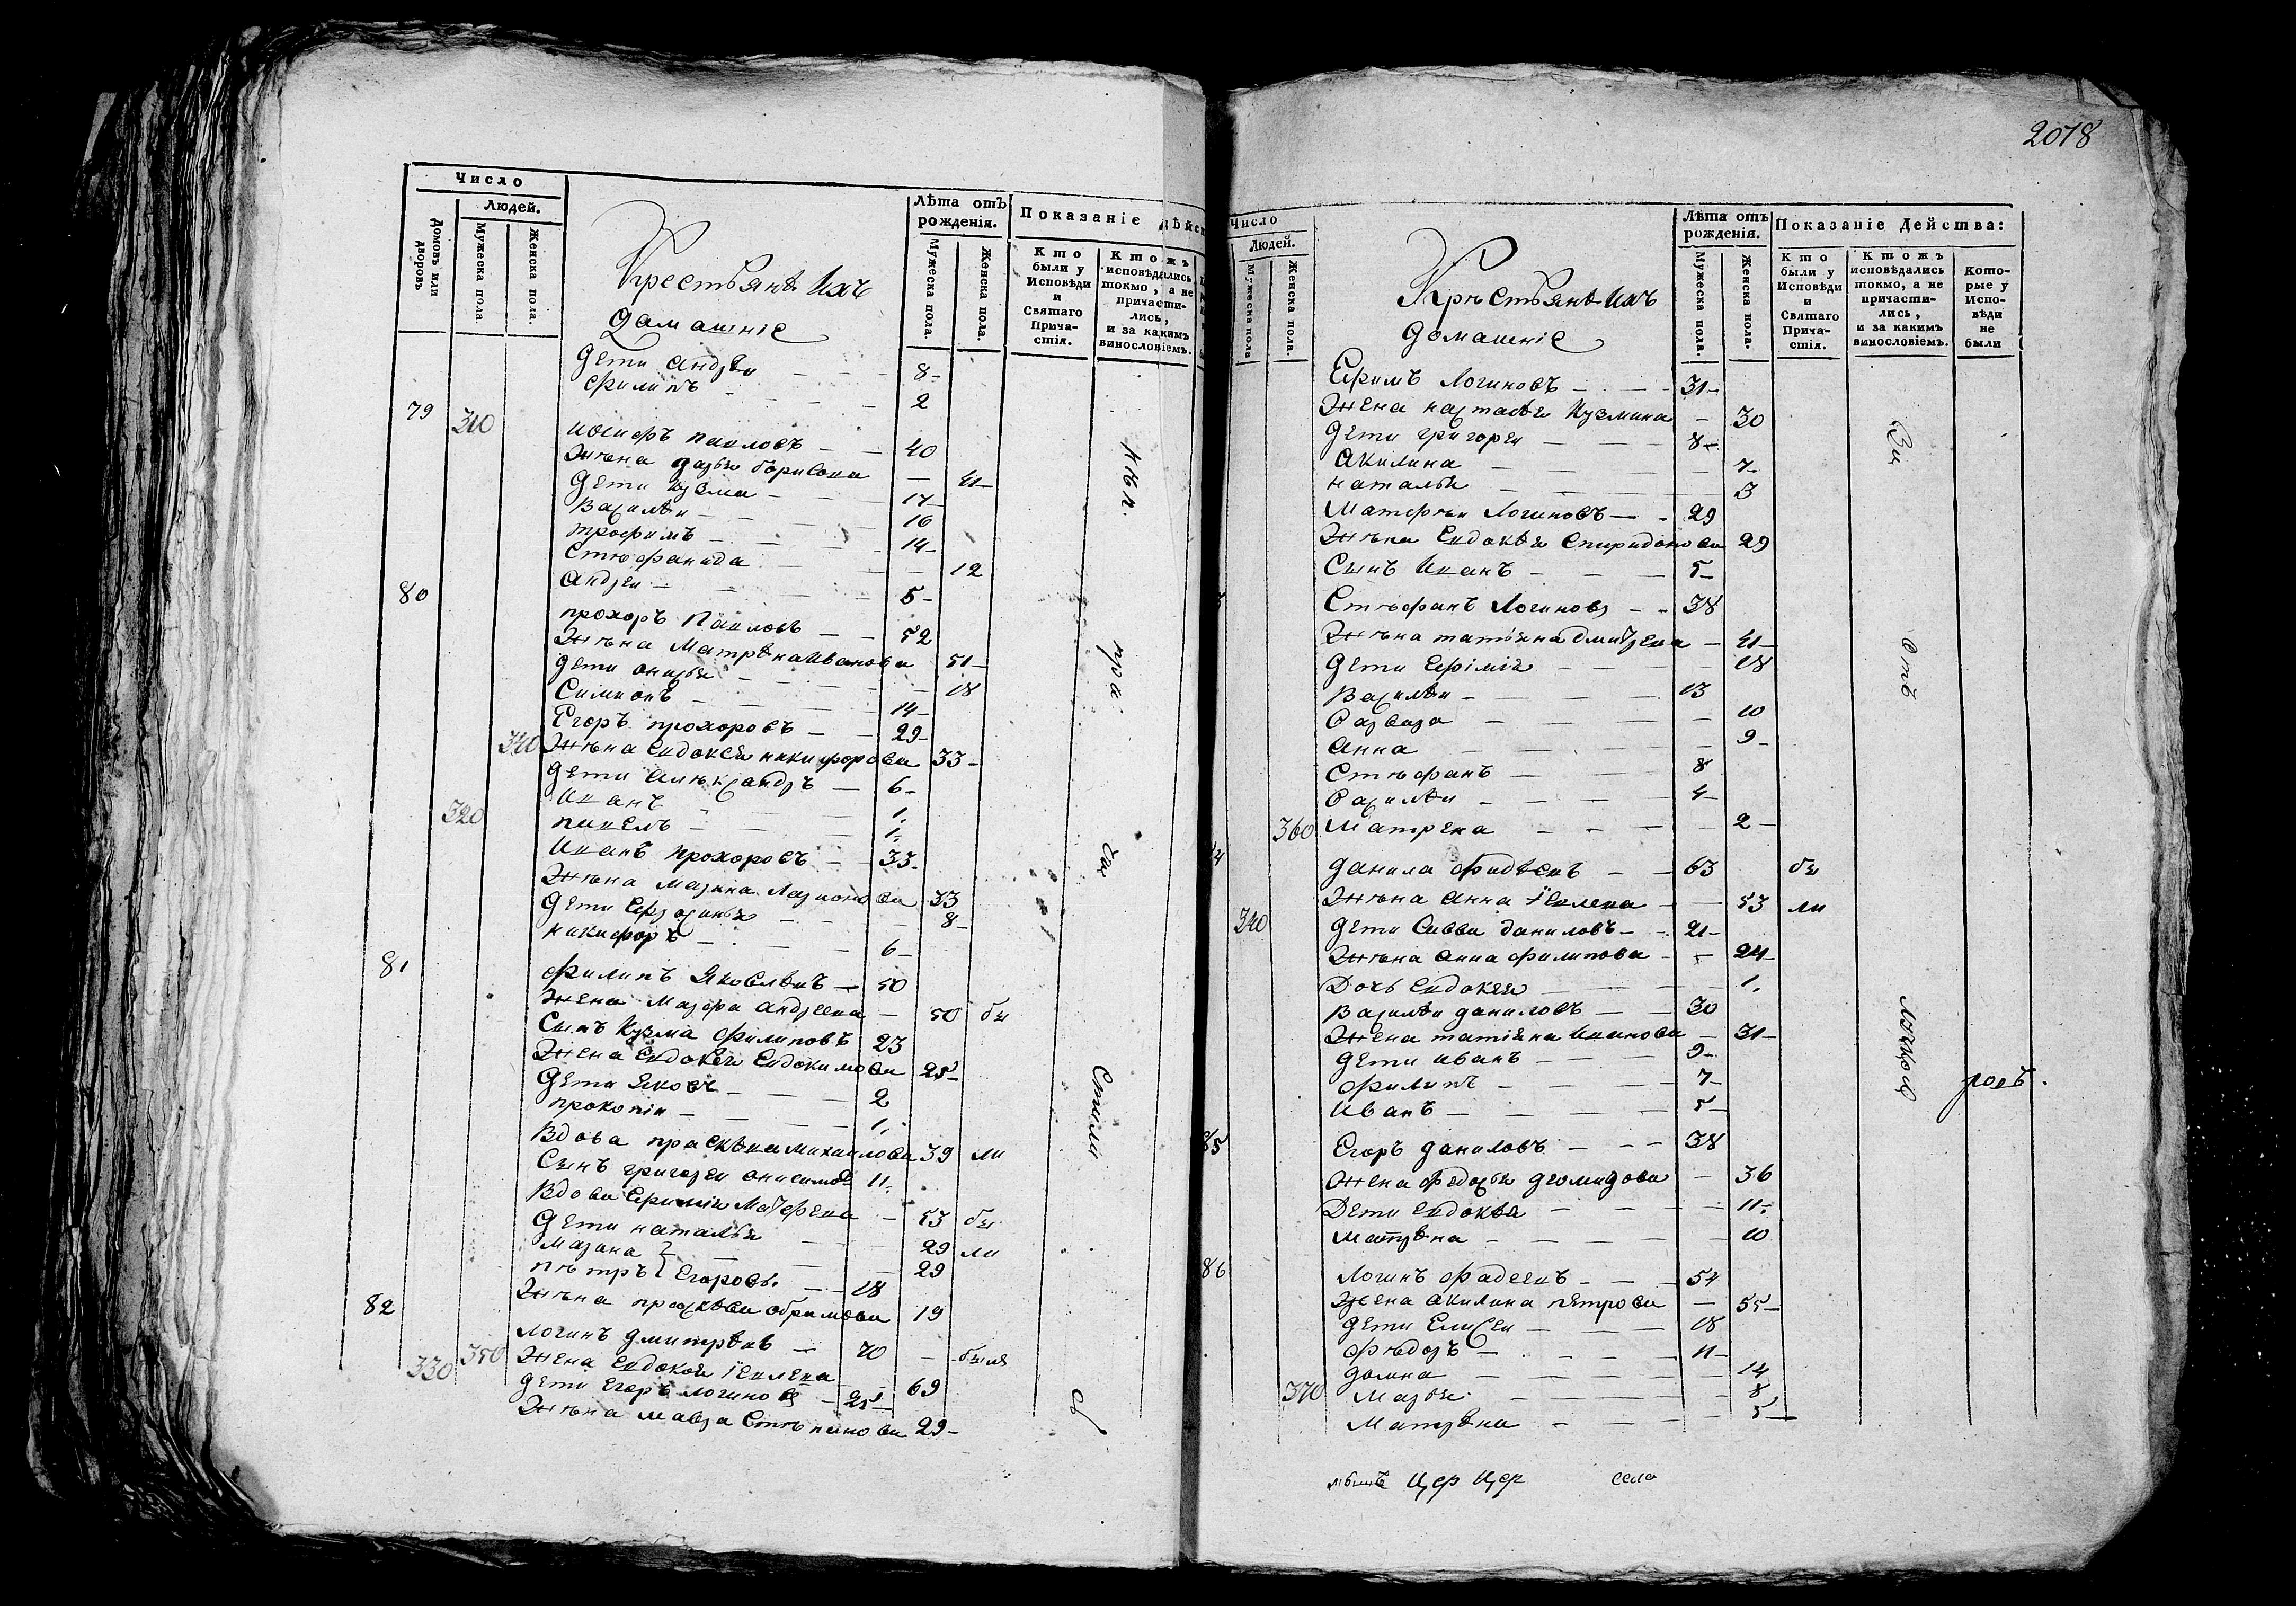 Число
Людей.
Домовъ или дворовъ
Мужеска пола.
Женска пола.
Крестьянѣ Ихъ
домашніе
Лѣта отъ рожденія.
Мужеска пола.
Женска пола.
Показаніе дѣйс
Кто были у Исповѣди и Святаго Причастія.
Ктожъ исповѣдались токмо, а не причастились, и за какимъ винословіемъ.
дети андрѣи 8
филипъ 2
79 310
иосифъ павловъ 40
жена дарья борисова 41
дети кузма 17
василѣи 16
трофимъ 14
стефанида 12
андреи 5
80
прохоръ павловъ 52
жена матрѣна иванова 51
дети анисья 18
симионъ 14
егоръ прохоровъ 29
340 жена евдокея никифорова 33
дети александръ 6
иванъ 1
320 павелъ 1
иванъ прохоровъ 33
жена марина ларионова 33
дети ефросинья 8
никифоръ 6
81
филипъ яковлѣвъ 50
жена марфа андреева 50 бы
сынъ кузма филиповъ 23
жена евдокея евдокимова 25
дети яковъ 2
прокопіи 1
вдова прасквѣа михаилова 39 ли
сынъ григореи анисимовъ 11
вдова ефимия матфеева 53 бы
дети наталья 29 ли
марина 29
петръ егоровы 18
жена прасквѣа ефимова 19
82
логинъ дмитрѣвъ 70
350 жена евдокея іевлева 69 была
330 дети егоръ логиновъ 25
жена мавра степанова 29
2078
Число
Людей.
Мужеска пола
Женска пола.
Крестьянѣ Ихъ
домашніе
Лѣта отъ рожденія.
Мужеска пола.
Женска пола.
Показаніе Действа:
Кто были у Исповѣди и Святаго Причастія.
Ктожъ исповѣдались токмо, а не причастились, и за какимъ винословіемъ.
Которые у Исповѣди не были
ефимъ логиновъ 31
жена настасѣя кузмина 30
дети григореи 8
акилина 7
наталья 3
матфеи логиновъ 29
жена евдокѣя спиридонова 29
сынъ иванъ 5
стефанъ логиновъ 38
жена татьяна дмитреева 41
дети ефіміа 18
василѣи 13
варвара 10
анна 9
стефанъ 8
василѣи 4
360 матрена 2
данила фадѣевъ 63 бы
жена анна іевлева 53 ли
340 дети савва даниловъ 21
жена анна филипова 24
дочь евдокея 1
василѣи даниловъ 30
жена татіяна иванова 31
дети иванъ 9
филипъ 7
иванъ 5
85
егоръ даниловъ 38
жена федосья диомидова 36
дети евдокѣя 11
матрѣна 10
86
логинъ фадеевъ 54
жена акилина петрова 55
дети елисеи 18
федоръ 11
домна 14
370 марья 8
матрѣна 5
цер цер села